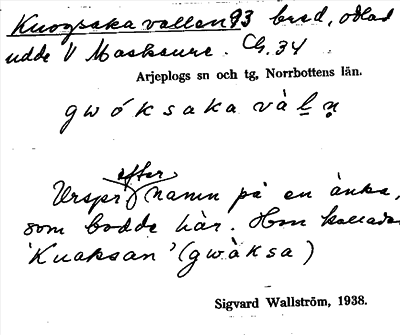 Kuogsaka vallen 93 bred, odlad
udde V Masksure. Ch. 34
Arjeplogs sn och tg, Norrbottens län.
gwóksaka vàḻṇ
efter
Urspr namn på en änka,
som bodde här. Hon kallades
'Kuaksan' (gwàksa)
Sigvard Wallström, 1938.